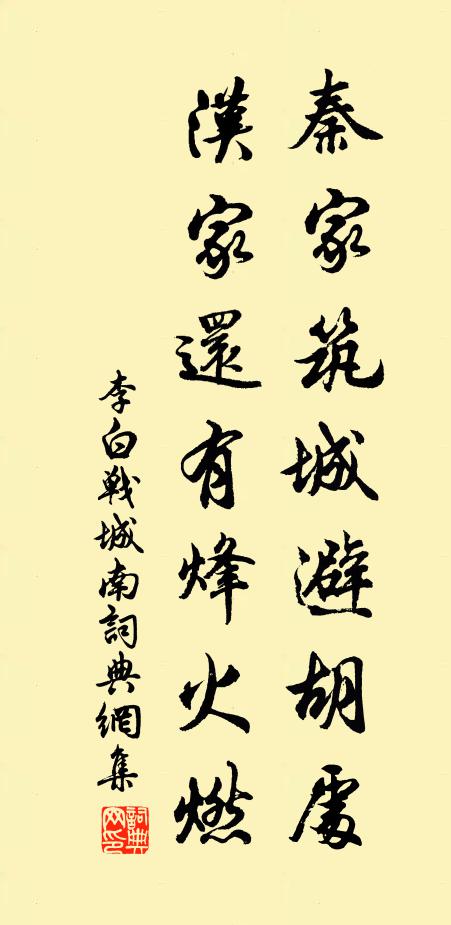 秦家筑城避胡處
漢家還有烽火燃
李白戰城南詞典網集
詞典網印